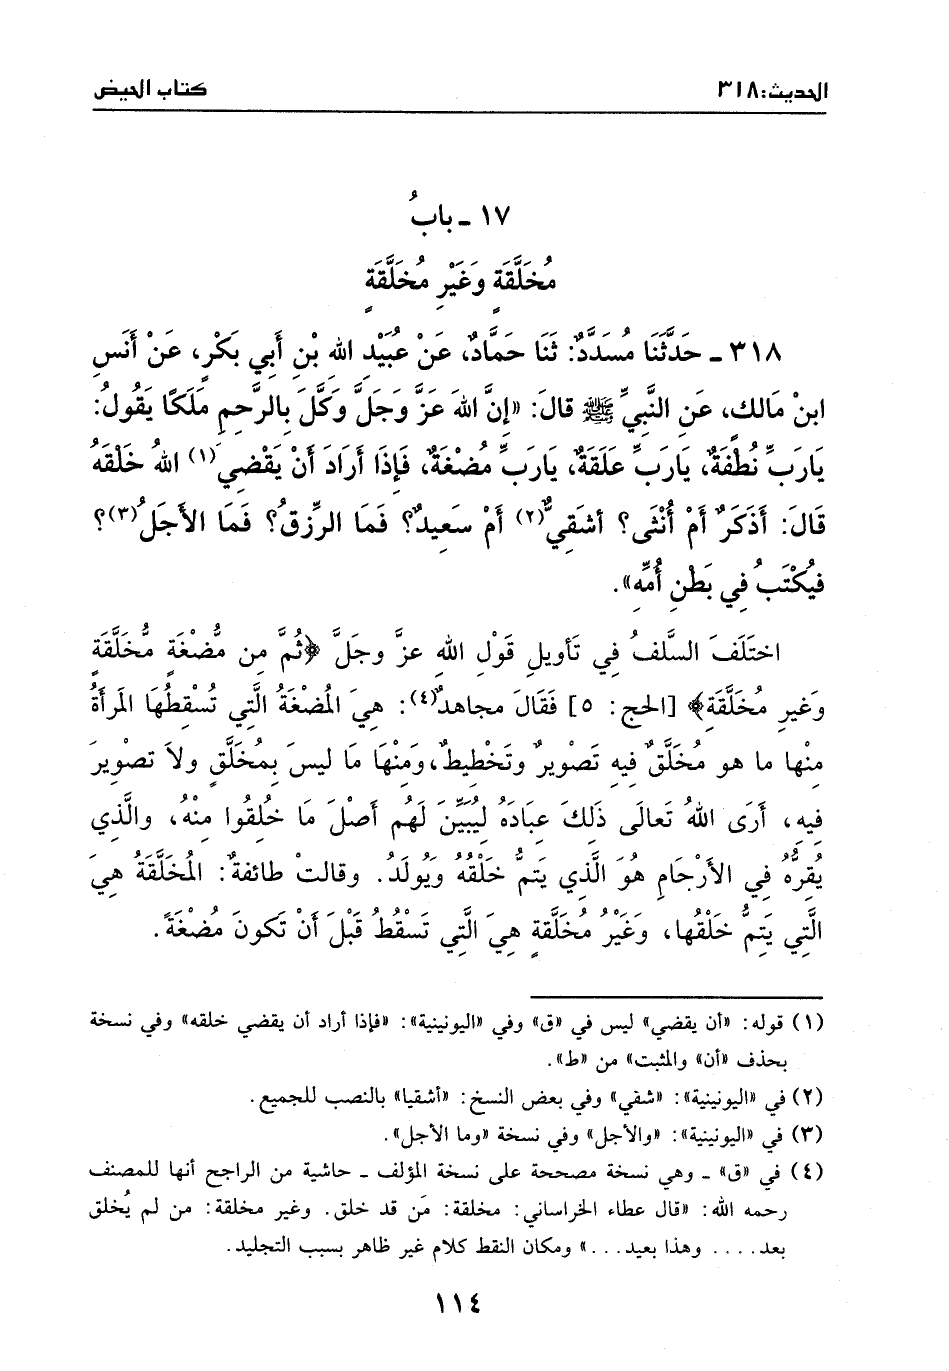 الحديث: ٣١٨
كتاب الحيض
١٧ ـ بابُ
مُخَلَّقَةٍ وَغَيْرِ مُخَلَّقَةٍ
٣١٨ ـ حَدَّثَنَا مُسَدَّدٌ: ثَنَا حَمَّادٌ، عَنْ عُبَيْدِ اللهِ بْنِ أَبِي بَكْرٍ، عَنْ أَنَسِ
ابنْ مَالك، عَنِ النَّبيِّ ﷺ قالَ: «إنَّ اللهَ عَزَّ وَجَلَّ وَكَّلَ بِالرَّحِمِ مَلَكًا يَقُولُ:
يَارَبِّ نُطْفَةٌ، يَارَبِّ عَلَقَةٌ، يَارَبِّ مُضْغَةٌ، فَإِذَا أَرَادَ أَنْ يَقْضِيَ(١) اللهُ خَلْقَهُ
قَالَ: أَذَكَرٌ أَمْ أُنْثَى؟ أشَقِيٌّ(٢) أَمْ سَعِيدٌ؟ فَمَا الرِّزقُ؟ فَمَا الأَجَلُ(٣)؟
فيُكْتَبُ فِي بَطْنِ أُمِّهِ».
اختَلَفَ السَّلفُ فِي تَأويلِ قَوْلِ اللهِ عزَّ وجَلَّ ﴿ثُمَّ مِن مُّضْغَةٍ مُّخَلَّقَةٍ
وَغَيرِ مُخَلَّقَة﴾ [الحج: ٥] فَقَالَ مجاهدٌ(٤): هِيَ المُضْغَةُ الَّتِي تُسْقِطُهَا المَرأَةُ
مِنْها ما هو مُخَلَّقٌ فِيهِ تَصْويرٌ وتَخْطيطٌ، وَمِنْهَا مَا ليسَ بِمُخَلَّقٍ ولاَ تصْويرَ
فِيهِ، أَرَى اللهُ تَعَالَى ذَلكَ عِبادَهُ ليُبَيِّنَ لَهُم أصْلَ مَا خُلِقُوا مِنْهُ، والَّذي
يُقرُّهُ فِي الأَرْحَامِ هُوَ الَّذِي يَتمُّ خَلْقُهُ وَيُولَدُ. وقالتْ طائفةٌ: المُخَلَّقَةُ هِيَ
الَّتِي يَتِمُّ خَلْقُها، وَغَيْرُ مُخَلَّقةٍ هِيَ الَّتِي تَسْقُطُ قَبْلَ أَنْ تَكونَ مُضْغَةً.
(١) قوله: «أن يقضي» ليس في «ق» وفي «اليونينية»: «فإذا أراد أن يقضي خلقه» وفي نسخة
بحذف «أن» والمثبت» من «ط».
(٢) في «اليونينية»: «شقي» وفي بعض النسخ: «أشقيا» بالنصب للجميع.
(٣) في «اليونينية»: «والأجل» وفي نسخة «وما الأجل».
(٤) في «ق» ـ وهي نسخة مصححة على نسخة المؤلف ـ حاشية من الراجح أنها للمصنف
رحمه الله: «قال عطاء الخراساني: مخلقة: مَن قد خلق. وغير مخلقة: من لم يُخلق
بعد.... وهذا بعيد...» ومكان النقط كلام غير ظاهر بسبب التجليد.
١١٤